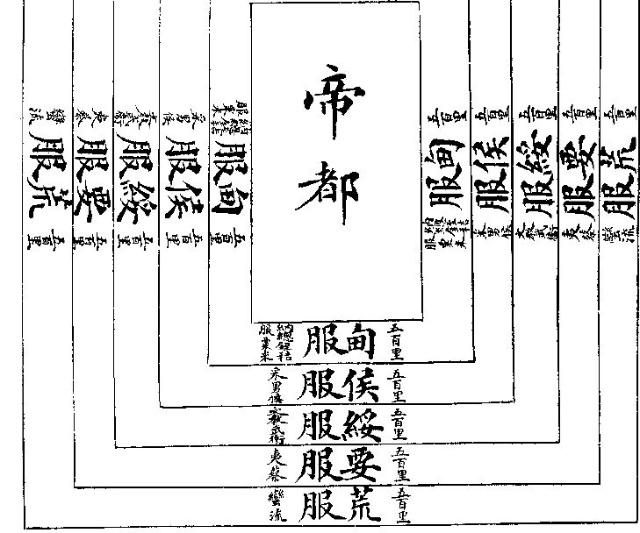 帝都
五百里
甸服
納總銍秸
服粟米
五百里
侯服
采男
五百里
綏服
武衛
五百里
要服
夷蔡
五百里
荒服
蠻流
五百里
甸服
五百里
侯服
采男
五百里
綏服
武衛
五百里
要服
夷蔡
五百里
荒服
蠻流
五百里
甸服
五百里
侯服
采男
五百里
綏服
五百里
要服
夷蔡
五百里
荒服
蠻流